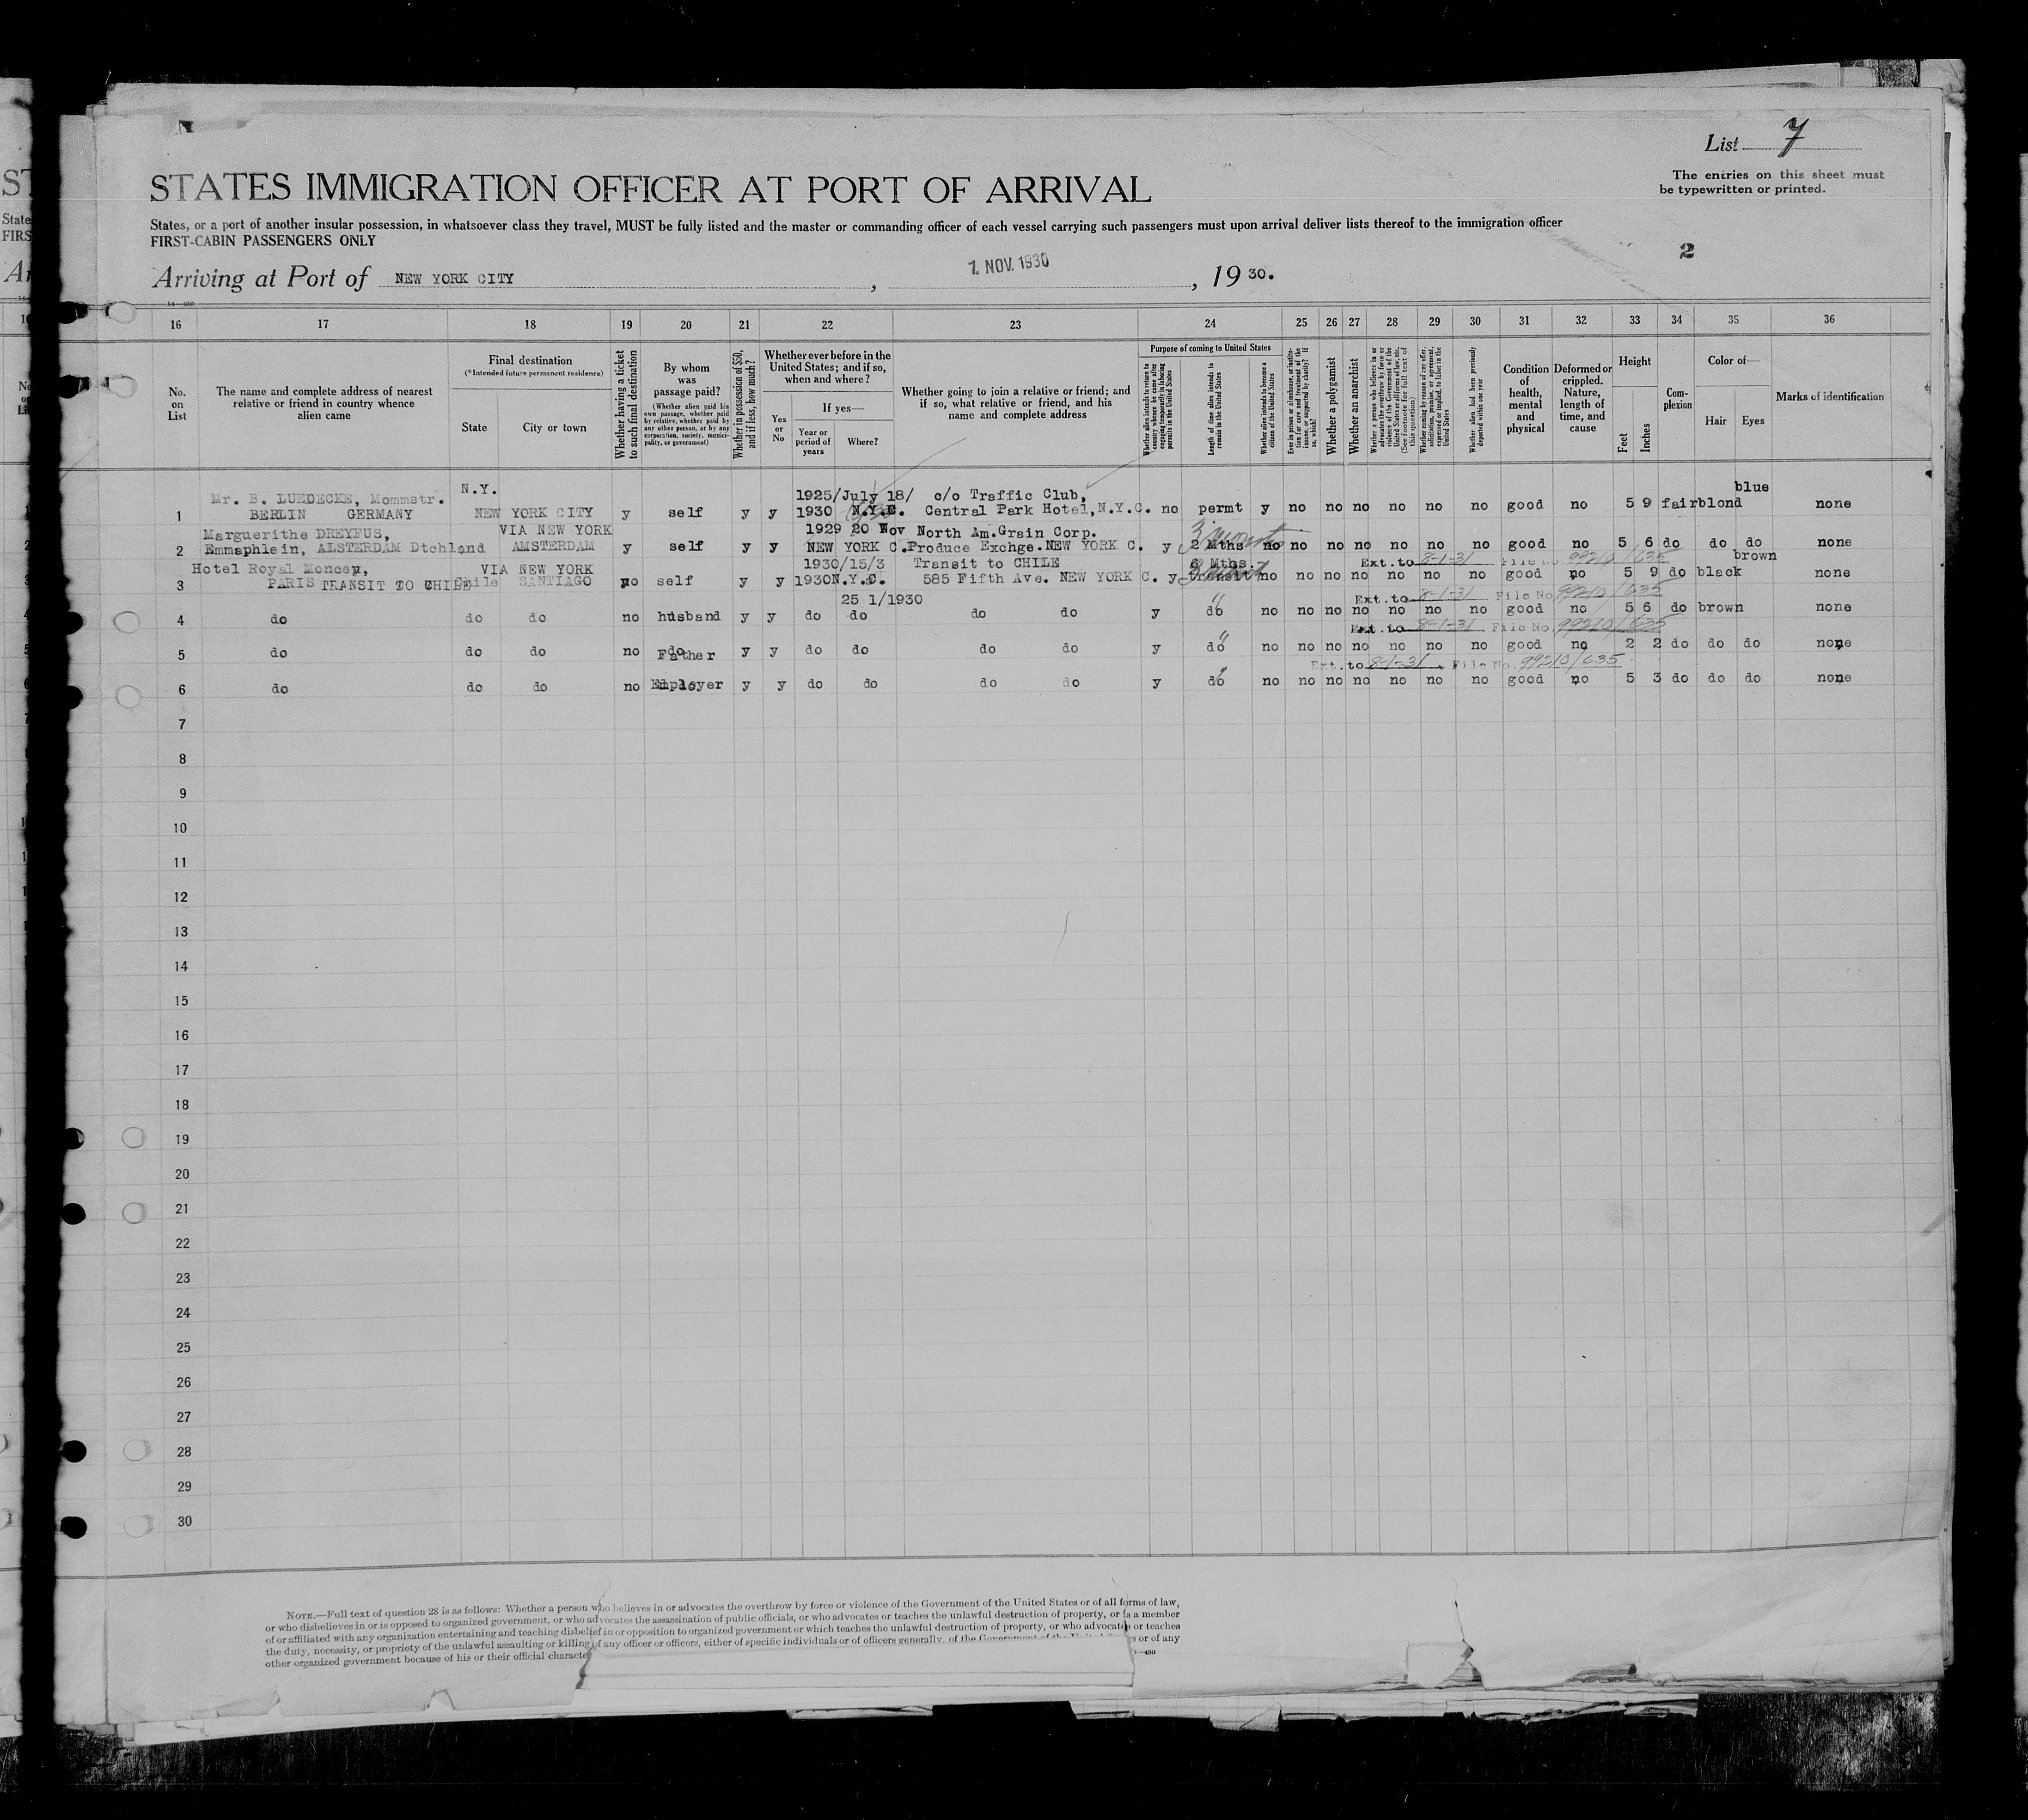 List 7
The entries on this sheet must
be typewritten or printed.
STATES IMMIGRATION OFFICER AT PORT OF ARRIVAL
States, or a port of another insular possession, in whatsoever class they travel, MUST be fully listed and the master or commanding officer of each vessel carrying such passengers must upon arrival deliver lists thereof to the immigration officer
FIRST-CABIN PASSENGERS ONLY
2
Arriving at Port of NEW YORK CITY, 1. NOV. 1930, 19 30.
16 17 18 19 20 21 22 23 24 25 26 27 28 29 30 31 32 33 34 35 36
No. on List
The name and complete address of nearest relative or friend in country whence alien came
Final destination
(*Intended future permanent residence)
State
City or town
Whether having a ticket to such final destination
By whom was passage paid?
(Whether alien paid his own passage, whether paid by relative, whether paid by any other person, or by any corporation, society, municipality, or government)
Whether in possession of $50, and if less, how much?
Whether ever before in the United States; and if so, when and where?
Yes or No
If yes—
Year or period of years
Where?
Whether going to join a relative or friend; and if so, what relative or friend, and his name and complete address
Purpose of coming to United States
Whether alien intends to return to country whence he came after engaging temporarily in laboring pursuits in the United States
Length of time alien intends to remain in the United States
Whether alien intends to become a citizen of the United States
Ever in prison or almshouse, or institution for care and treatment of the insane, or supported by charity? If so, which?
Whether a polygamist
Whether an anarchist
Whether a person who believes in or advocates the overthrow by force or violence of the Government of the United States or all forms of law, etc. (See footnote for full text of this question)
Whether coming by reason of any offer, solicitation, promise, or agreement, expressed or implied, to labor in the United States
Whether alien had been previously deported within one year
Condition of health, mental and physical
Deformed or crippled. Nature, length of time, and cause
Height
Feet
Inches
Complexion
Color of—
Hair
Eyes
Marks of identification
Mr. B. LUEDECKE, Mommstr. N.Y. 1925/July 18/ c/o Traffic Club, blue
1 BERLIN GERMANY NEW YORK CITY y self y y 1930 N.Y.C. Central Park Hotel, N.Y.C. no permt y no no no no no no good no 5 9 fair blond none
Marguerithe DREYFUS, VIA NEW YORK 1929 20 Nov North Am. Grain Corp.
2 Emmaphlein, AMSTERDAM Dtchland AMSTERDAM y self y y NEW YORK C. Produce Exchge. NEW YORK C. y 2 Mths no no no no no no no good no 5 6 do do do none
Hotel Royal Moncey, VIA NEW YORK 1930/15/3 Transit to CHILE Mths. Ext. to 8-1-31 File No. 99210/635 brown
3 PARIS TRANSIT TO CHILE Chile SANTIAGO no self y y 1930 N.Y.C. 585 Fifth Ave. NEW YORK C. y transit no no no no no no no good no 5 9 do black none
25 1/1930 " Ext. to 8-1-31 File No. 99210/635
4 do do do no husband y y do do do do y do no no no no no no no good no 5 6 do brown none
" Ext. to 8-1-31 File No. 99210/635
5 do do do no Father y y do do do do y do no no no no no no no good no 2 2 do do do none
Ext. to 8-1-31 File No. 99210/635
6 do do do no Employer y y do do do do y do no no no no no no no good no 5 3 do do do none
7
8
9
10
11
12
13
14
15
16
17
18
19
20
21
22
23
24
25
26
27
28
29
30
NOTE.—Full text of question 28 is as follows: Whether a person who believes in or advocates the overthrow by force or violence of the Government of the United States or of all forms of law,
or who disbelieves in or is opposed to organized government, or who advocates the assassination of public officials, or who advocates or teaches the unlawful destruction of property, or is a member
of or affiliated with any organization entertaining and teaching disbelief in or opposition to organized government or which teaches the unlawful destruction of property, or who advocates or teaches
the duty, necessity, or propriety of the unlawful assaulting or killing of any officer or officers, either of specific individuals or of officers generally, of the Government of the United S s or of any
other organized government because of his or their official characte